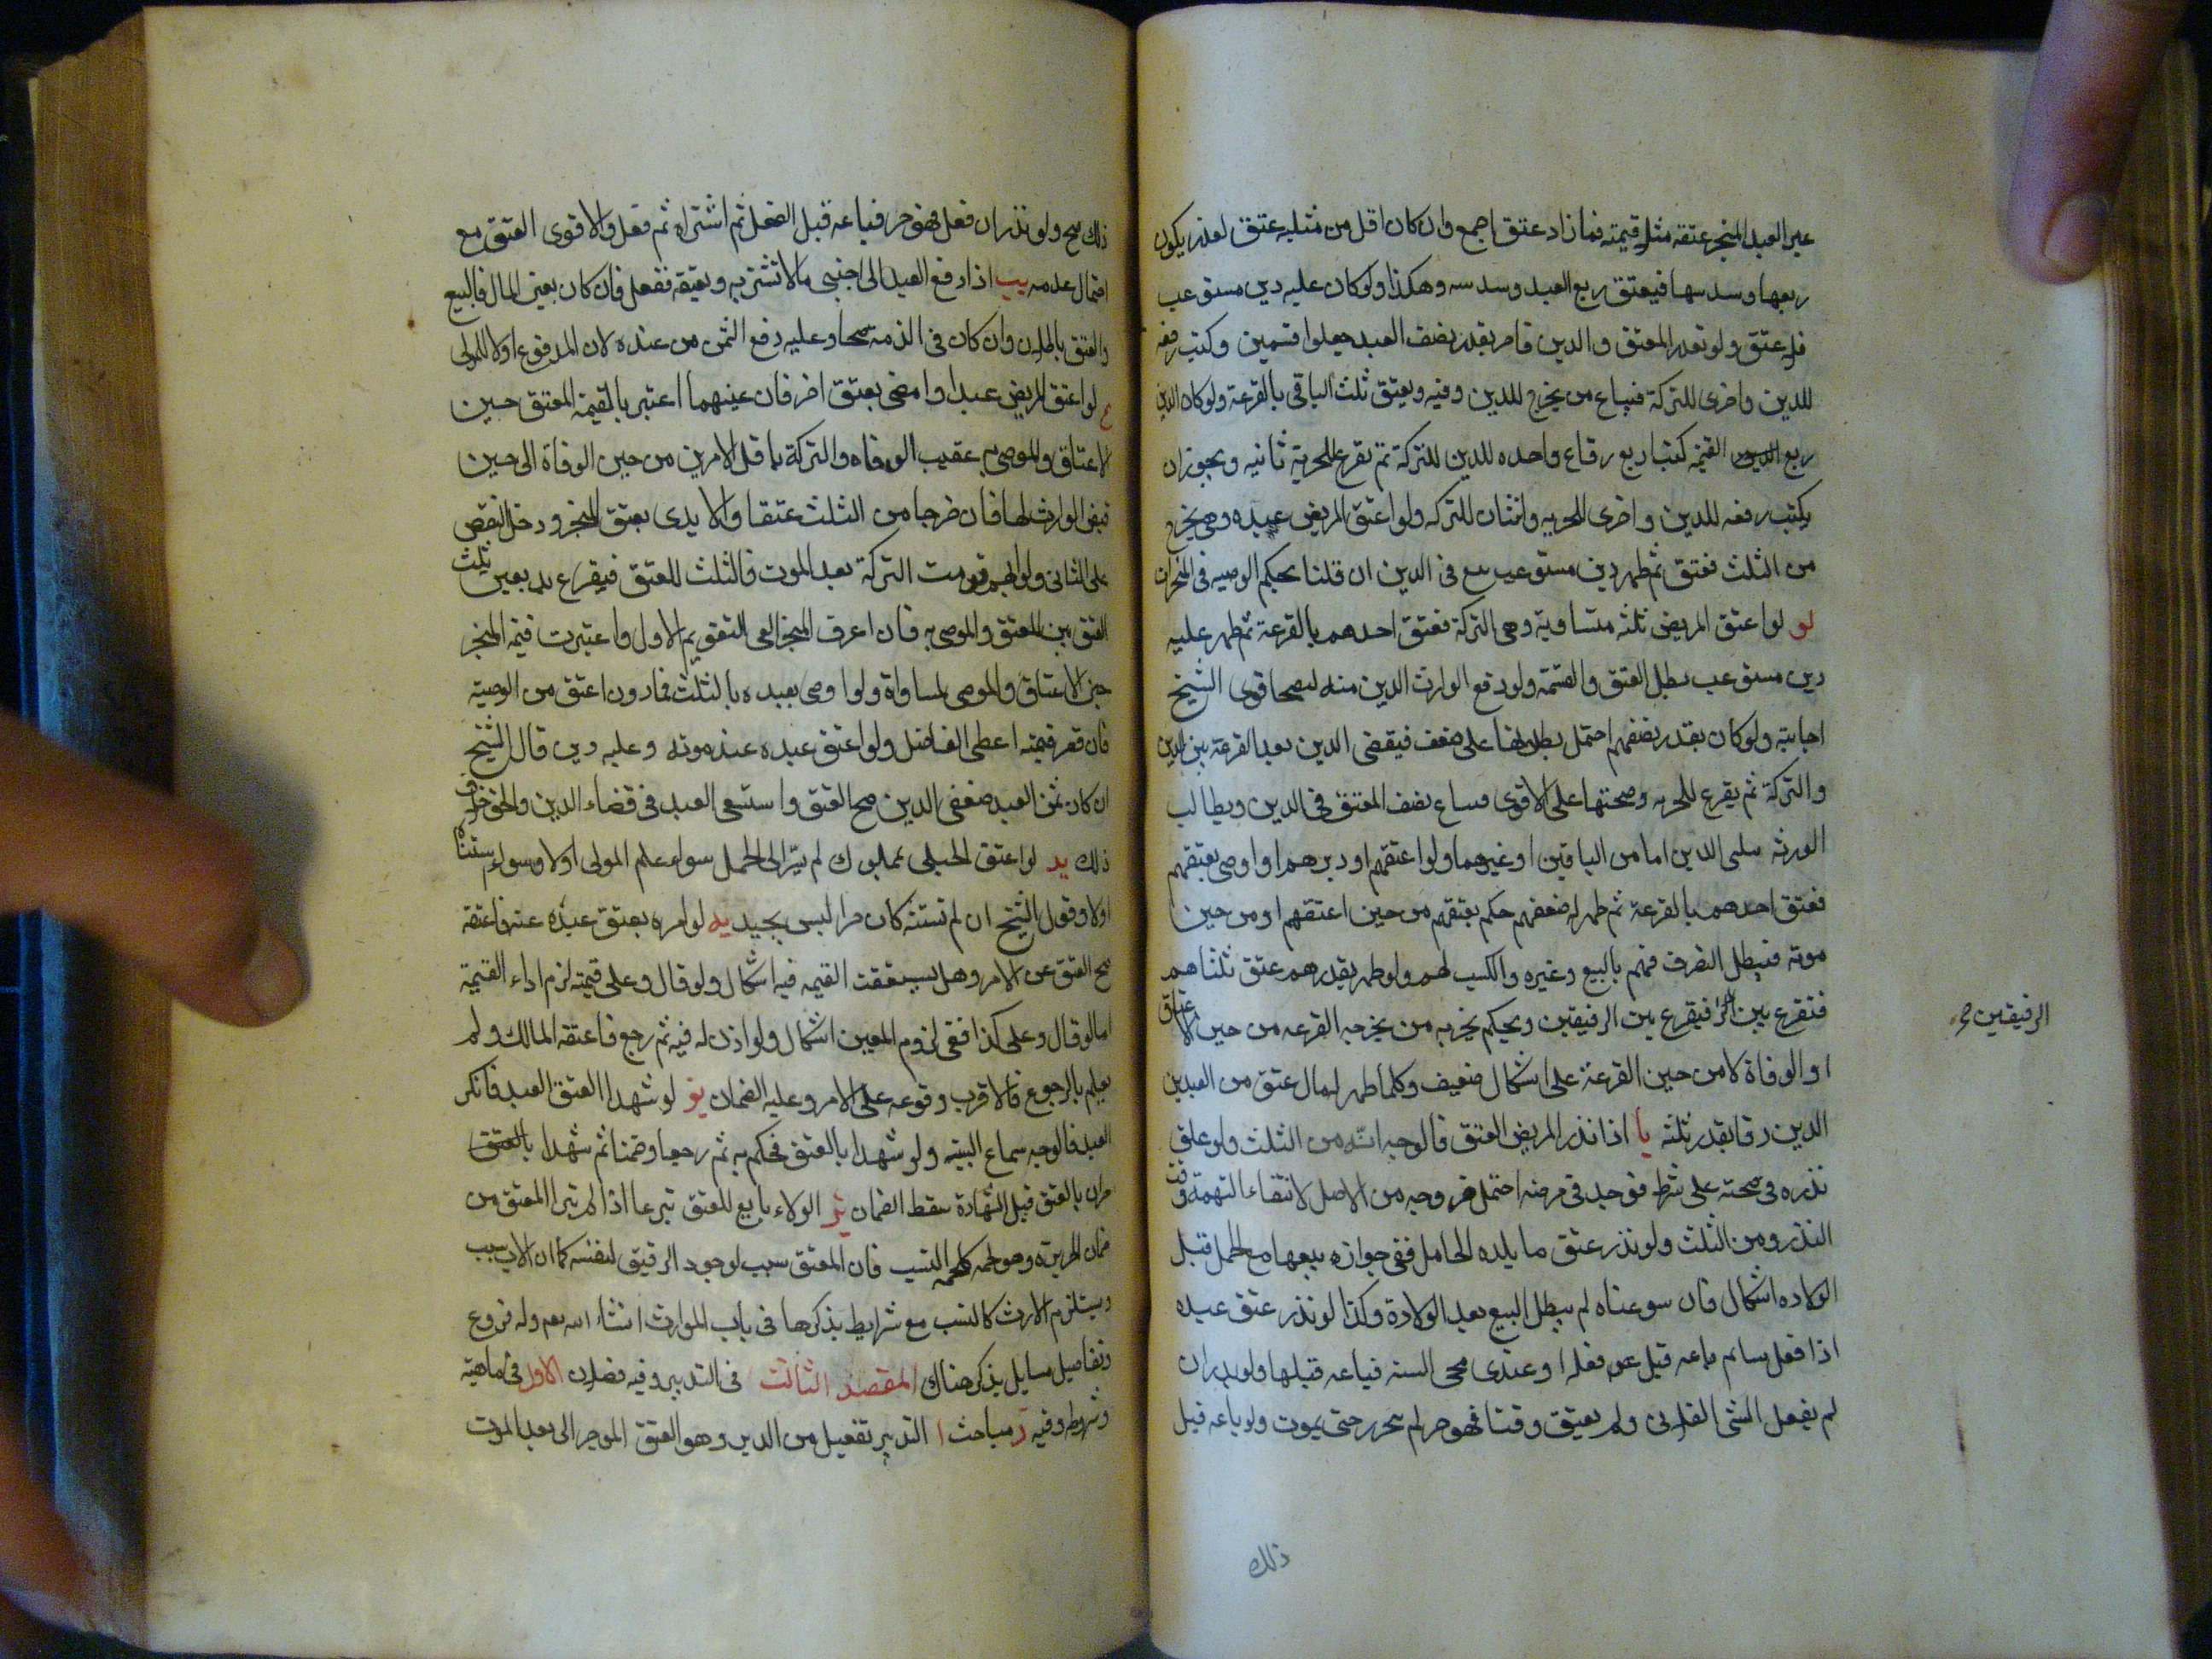 غير العبد المنجز عتقه مثلي قيمته فما زاد عتق اجمع وان كان اقل من مثليه عتق لعذر يكون
ربعها وسدسها فيعتق ربع العبد وسدسه وهكذا ولو كان عليه دين مستوعب
فلا عتق ولو تعدد المعتق والدين قاصر بقدر نصف العبد جعلوا قسمين وكتب رقعه
للدين واخرى للتركة فيباع من يخرج للدين وفيه ويعتق ثلث الباقي بالقرعة ولو كان الدين
ربع القيمة كتب اربع رقاع واحده للدين للتركة ثم تقرع للحرية ثانيه ويجوز ان
يكتب رقعه للدين واخرى للحريه واثنتان للتركه ولو اعتق المريض عبده وهو يخرج
من الثلث فعتق ثم ظهر دين مستوعب بيع في الدين ان قلنا بحكم الوصيه في المنجزات
لو اعتق المريض ثلثه متساوية وهي التركة فعتق احدهم بالقرعة ثم ظهر عليه
دين مستوعب بطل العتق والقسمة ولو دفع الوارث الدين منه ليصحا قوى الشيخ
اجابته ولو كان بقدر نصفهم احتمل بطلانها على ضعف فيقضى الدين بعد القرعة بين الدين
والتركة ثم يقرع للحريه وصحتها على الاقوى فيباع نصف المعتق في الدين ويطالب
الورثه بثلثي الدين اما من الباقين او غيرهما ولو اعتقهم او دبرهم او اوصى بعتقهم
فعتق احدهم بالقرعة ثم ظهر له ضعفهم حكم بعتقهم من حين اعتقهم او من حين
موته فيبطل التصرف فيهم بالبيع وغيره والكسب لهم ولو ظهر بقدرهم عتق ثلثاهم
فتقرع بين فيقرع بين الرقيقين ويحكم بحريه من يخرجه القرعه من حين الاعتاق
الرقيقين
او الوفاة لا من حين القرعة على اشكال ضعيف وكلما ظهر له مال عتق من العبدين
الذين رقا بقدر ثلثه يا اذا نذر المريض العتق فالوجه انه من الثلث ولو علق
نذره في صحته على شرط فوجد في مرضه احتمل خروجه من الاصل لانتفاء التهمة وقت
النذر ومن الثلث ولو نذر عتق ما يلده الحامل ففي جوازه بيعها مع الحمل قبل
الولاده اشكال فان سوغناه لم يبطل البيع بعد الولادة وكذا لو نذر عتق عبده
اذا فعل سالم باعه قبل فعله او عندى مجئ السنه فباعه قبلها ولو نذر ان
لم يفعل الشئ الفلانى ولم يعتق وقتا فهو حر لم يحرر حتى يموت ولو باعه قبل
ذلك
ذلك صح ولو نذر ان فعل فهو حر فباعه قبل الفعل ثم اشتراه ثم فعل فالاقوى العتق مع
احتمال عدمه يب اذا دفع العبد الى اجنبي مالا تشتريه ويعتقه ففعل فان كان بعين المال فالبيع
والعتق باطلان وان كان في الذمة صحا وعليه دفع الثمن من عنده لان المدفوع اولا للمولى
لو اعتق المريض عبدا واوصى بعتق اخر فان عينهما اعتبر بالقيمة المعتق حين
الاعتاق والموصى به عقيب الوفاه والتركة باقل الامرين من حين الوفاة الى حين
قبض الوارث لها فان خرجا من الثلث عتقا والا بدئ بعتق المنجز ودخل النقص
على الثاني ولو ابهم قومت التركة بعد الموت فالثلث للعتق فيقرع بعد تعيين ثلث
العتق بين المعتق والموصى به فان اعرف المنجز الغى التقويم الاول واعتبرت قيمة المنجز
حين الاعتاق والموصى لمساواة ولو اوصى بعبده بالثلث فما دون اعتق من الوصية
فان قصر قيمته اعطى الفاضل ولو اعتق عبده عند موته وعليه دين قال الشيخ
ان كان ثمن العبد ضعفى الدين صح العتق واستسعى العبد في قضاء الدين والحق خلاف
ذلك يد لو اعتق الحبلى بمملوك لم يسر الى الحمل سواء علم المولى اولا وسواء استثناه
اولا وقول الشيخ ان لم تستثنه كان حرا ليس بجيد يه لو امره بعتق عبده عنه فاعتقه
صح العتق عن الامر وهل يستحقت القيمه فيه اشكال ولو قال وعلى قيمته لزم اداء القيمة
اما لو قال وعلى كذا ففي لزوم المعين اشكال ولو اذن له فيه ثم رجع فاعتقه المالك ولم
يعلم بالرجوع فالاقرب وقوعه على الامر وعليه الضمان يو لو شهدا العتق العبد فانكر
العبد فالوجه سماع البينه ولو شهدا بالعتق فحكم به ثم رجعا وضمنا ثم شهدا
اخران بالعتق قبل الشهادة سقط الضمان يز الولاء تابع للعتق تبرعا اذا لم تبرا المعتق من
ضمان الجريرة وهو لحمه كلحمة النسب فان المعتق سبب لوجود الرقيق لنفسه كما ان الاب سبب
ويستلزم الارث كالنسب مع شرايط يذكرها في باب المواريث انشاء الله تعم وله فروع
وتفاصيل مسايل يذكر هناك المقصد الثالث في التدبير وفيه فصلان الاول في ماهيته
وشروطه وفيه ز مباحث ا التدبير تفعيل من الدبر وهو العتق الموجر الى بعد الموت